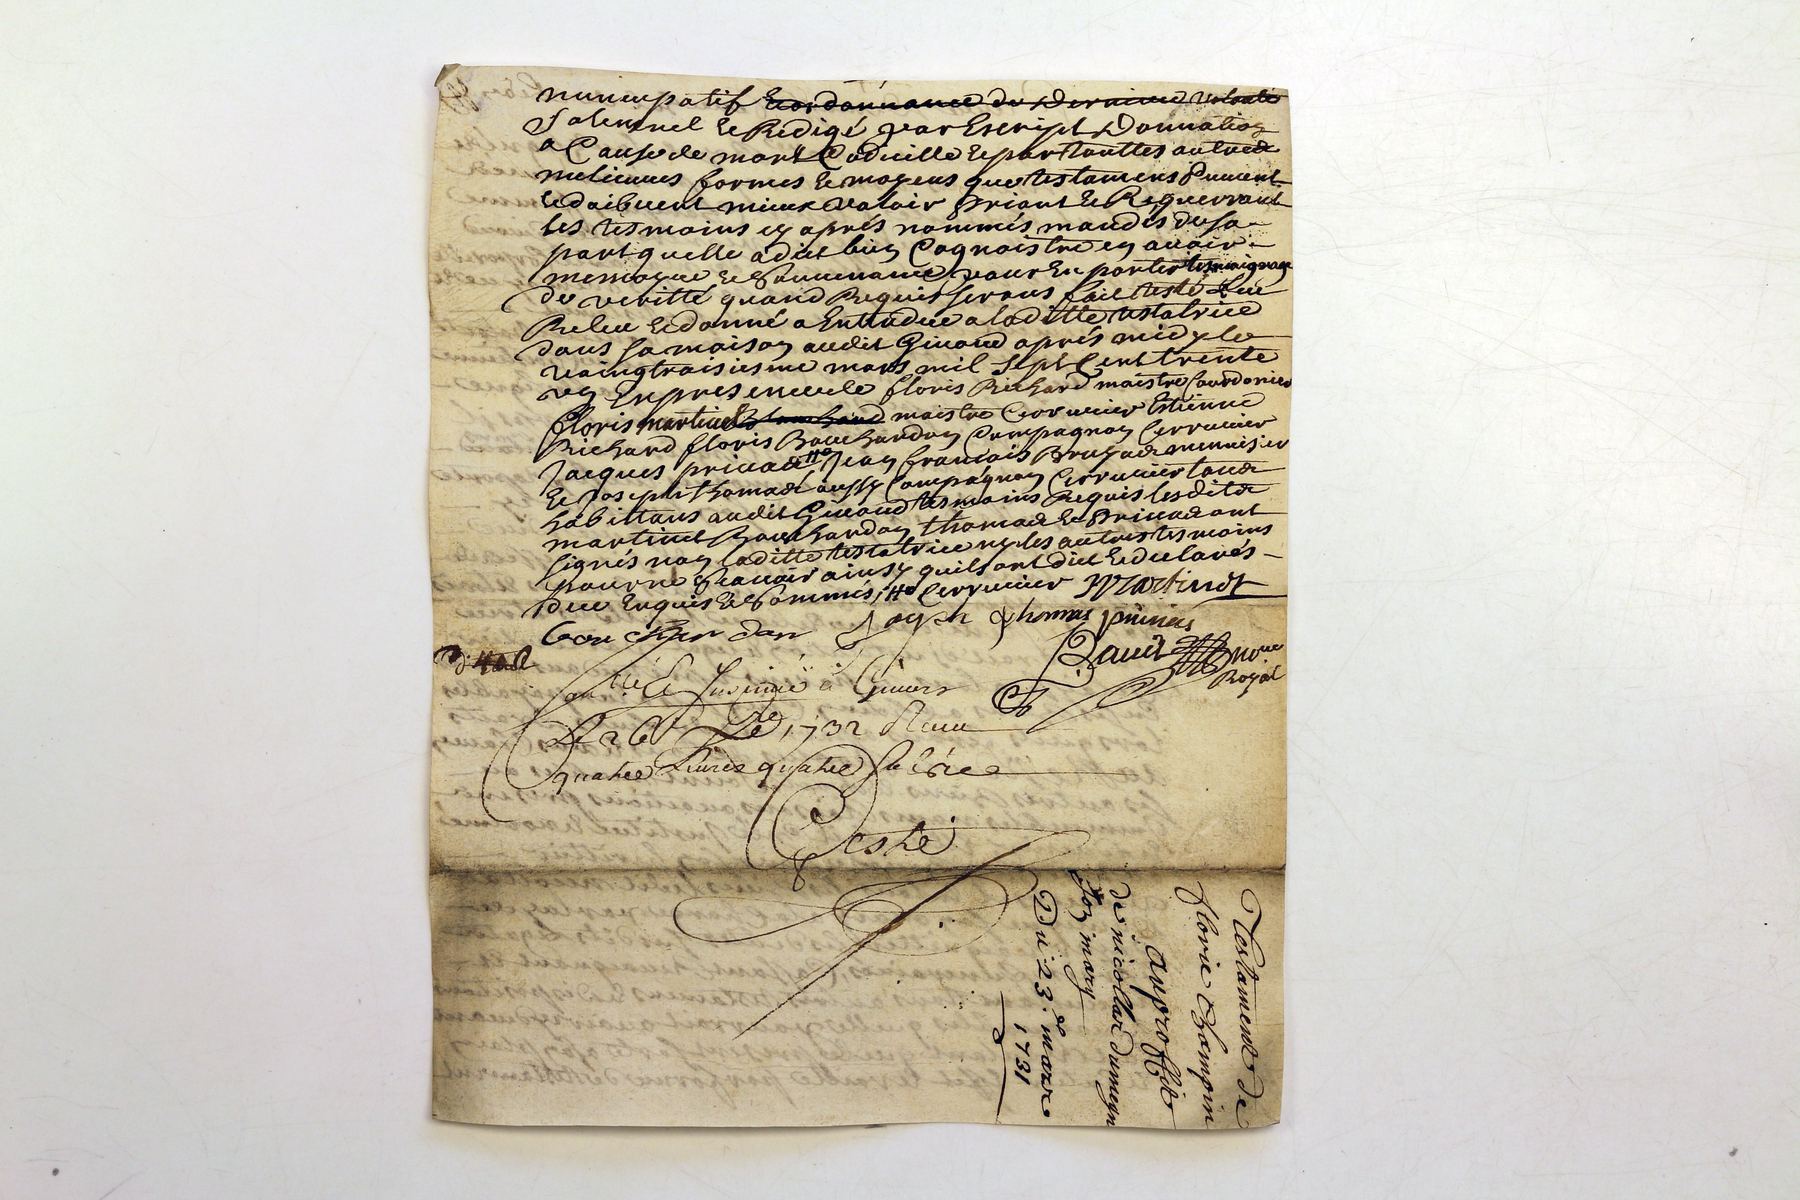 nuncupatif et ordonnance de derniere volonte
Solemnel et Redigé par Escript Donnation
a Cause de mort Codicille et par touttes autres
melieures formes et moyens que testamens Puuent
et doibuent mieux valoir Priant et Requerrant
les tesmoins cy aprés nommés mandés de sa
part quelle a dit bien Cognoistre en auoir
memoyre et Souuenance pour En porter tesmoignage
de veritté quand Requis seront fait testé Leu
Releu et donné a Entendre a laditte testatrice
dans sa maison audit Giuord aprés midy le
vaingtroisiesme mars mil Sept Cent trente
vn En presence de floris Richard maistre Courdonier
floris martinet maistre Serrurier Estienne
Richard floris Bouchardon Compagnon Serrurier
Jacques priuat Jean francois menuisier
et Joseph thomas aussy Compagnon Serrurier tous
habittans audit Giuord tesmoins Requis lesdits
martinet Bouchardon thomas et Priuat ont
signés non laditte testatrice ny les autres tesmoins
pour ne Scauoir ainsy quils ont dit et declarés
deue Enquis et Sommés Serrurier Martinet
Bouchardon Joseph thomas priuas
Royal
Con.lé et Insinué à Giuors
Le 26 1732 Receu
quatre Liures quatre Sols
Testament de
florie Champin
au proffit
de nicollas dumeyn
son mary
Du 23.e mars
1731